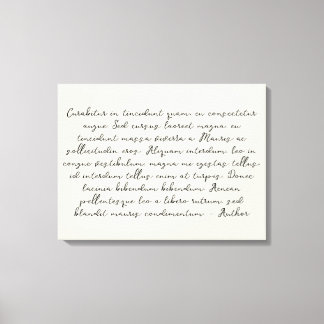 Curabitur in tincidunt quam, eu consectetur
augue. Sed cursus laoreet magna, eu
tincidunt massa viverra a. Mauris ac
sollicitudin eros. Aliquam interdum leo in
congue vestibulum, magna mi egestas tellus,
id interdum tellus enim at turpis. Donec
lacinia bibendum bibendum. Aenean
pellentesque leo a libero rutrum, sed
blandit mauris condimentum. - Author